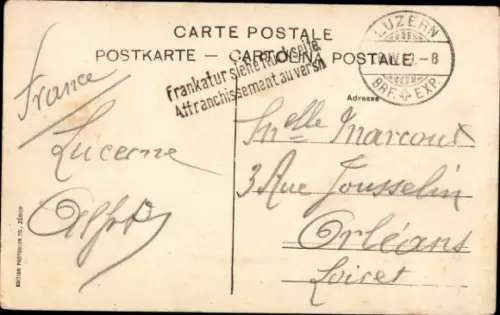 CARTE POSTALE
POSTKARTE — CARTOLINA POSTALE
Frankatur siehe Rückseite
Affranchissement au verso
LUZERN
BRF. EXP.
Adresse
France
Lucerne
Mlle Marcoux
3 Rue Jousselin
Orléans
Loiret